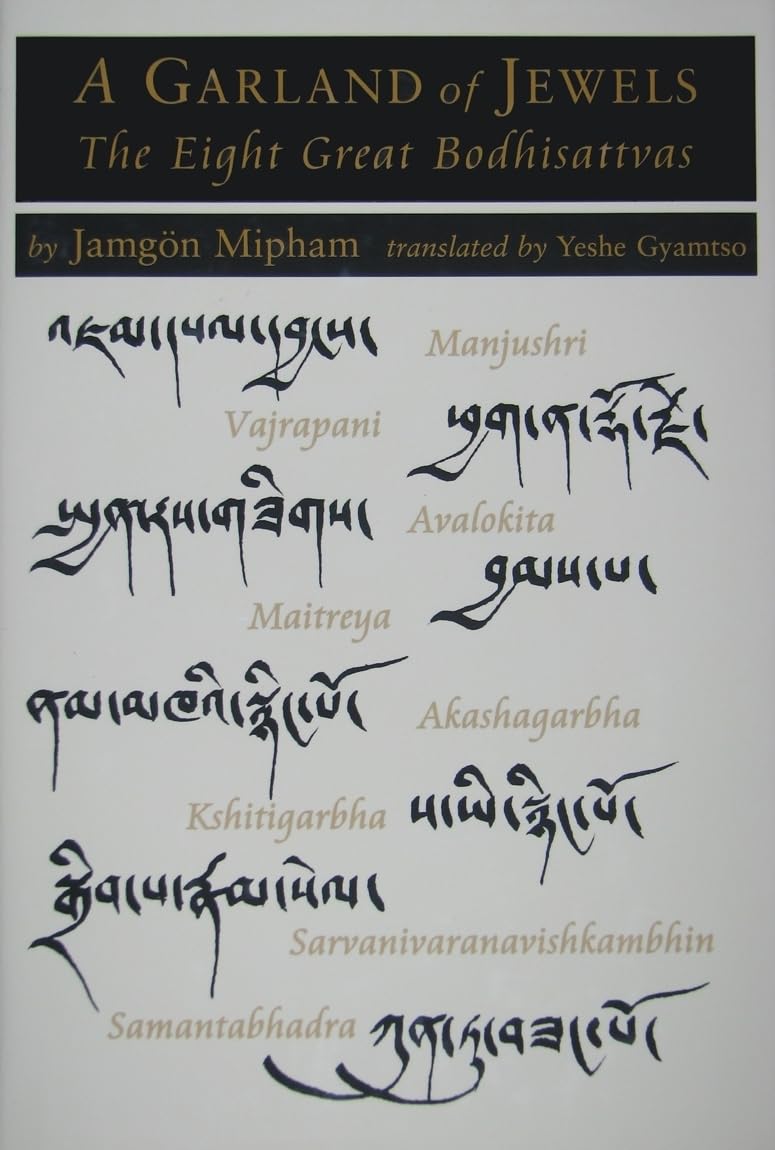 A GARLAND of JEWELS
The Eight Great Bodhisattvas
by Jamgön Mipham translated by Yeshe Gyamtso
འཇམ་དཔལ་དབྱངས། Manjushri
Vajrapani ཕྱག་ན་རྡོ་རྗེ།
སྤྱན་རས་གཟིགས། Avalokita
Maitreya བྱམས་པ།
ནམ་མཁའི་སྙིང་པོ། Akashagarbha
Kshitigarbha ས་ཡི་སྙིང་པོ།
སྒྲིབ་པ་རྣམ་སེལ།
Sarvanivaranavishkambhin
Samantabhadra ཀུན་ཏུ་བཟང་པོ།